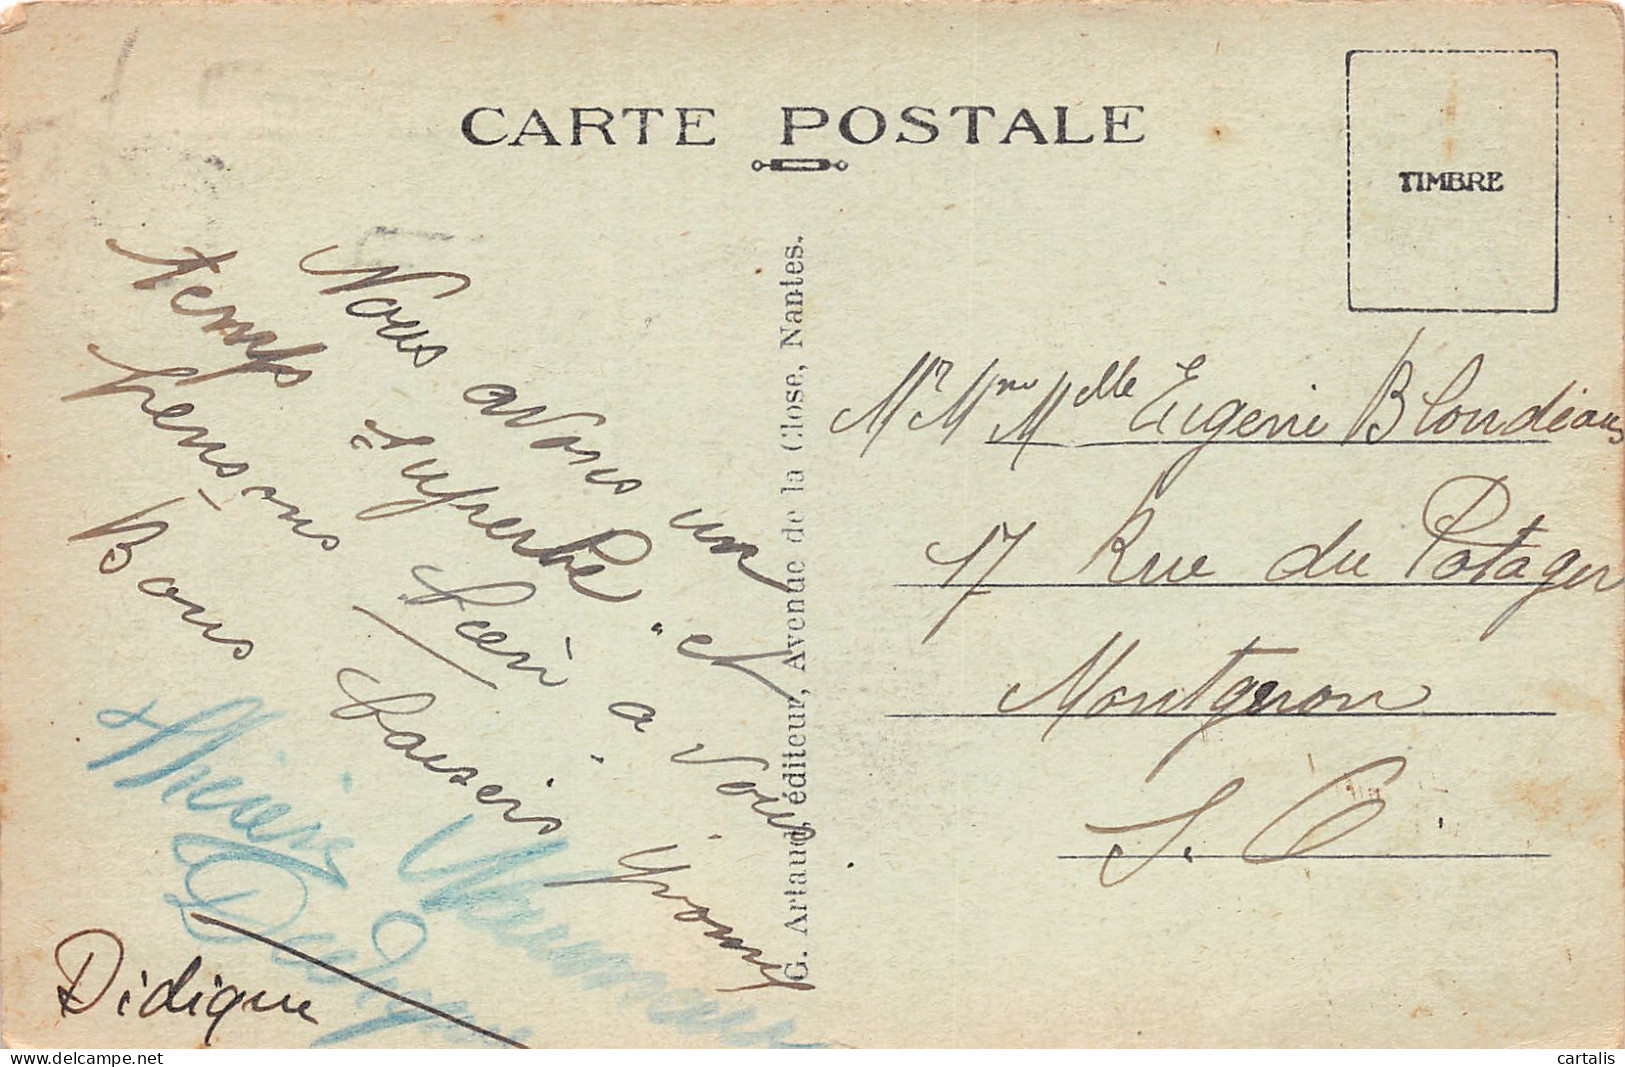 CARTE POSTALE
TIMBRE
Nous avons un
temps superbe et
pensons bien à vous
Bons baisers Yvonne
Didique
G. Artaud, éditeur, Avenue de la Close, Nantes.
Mr Mme Melle Eugenie Blondeau
17 Rue du Potager
Montgeron
S. O.
delcampe.net
cartalis